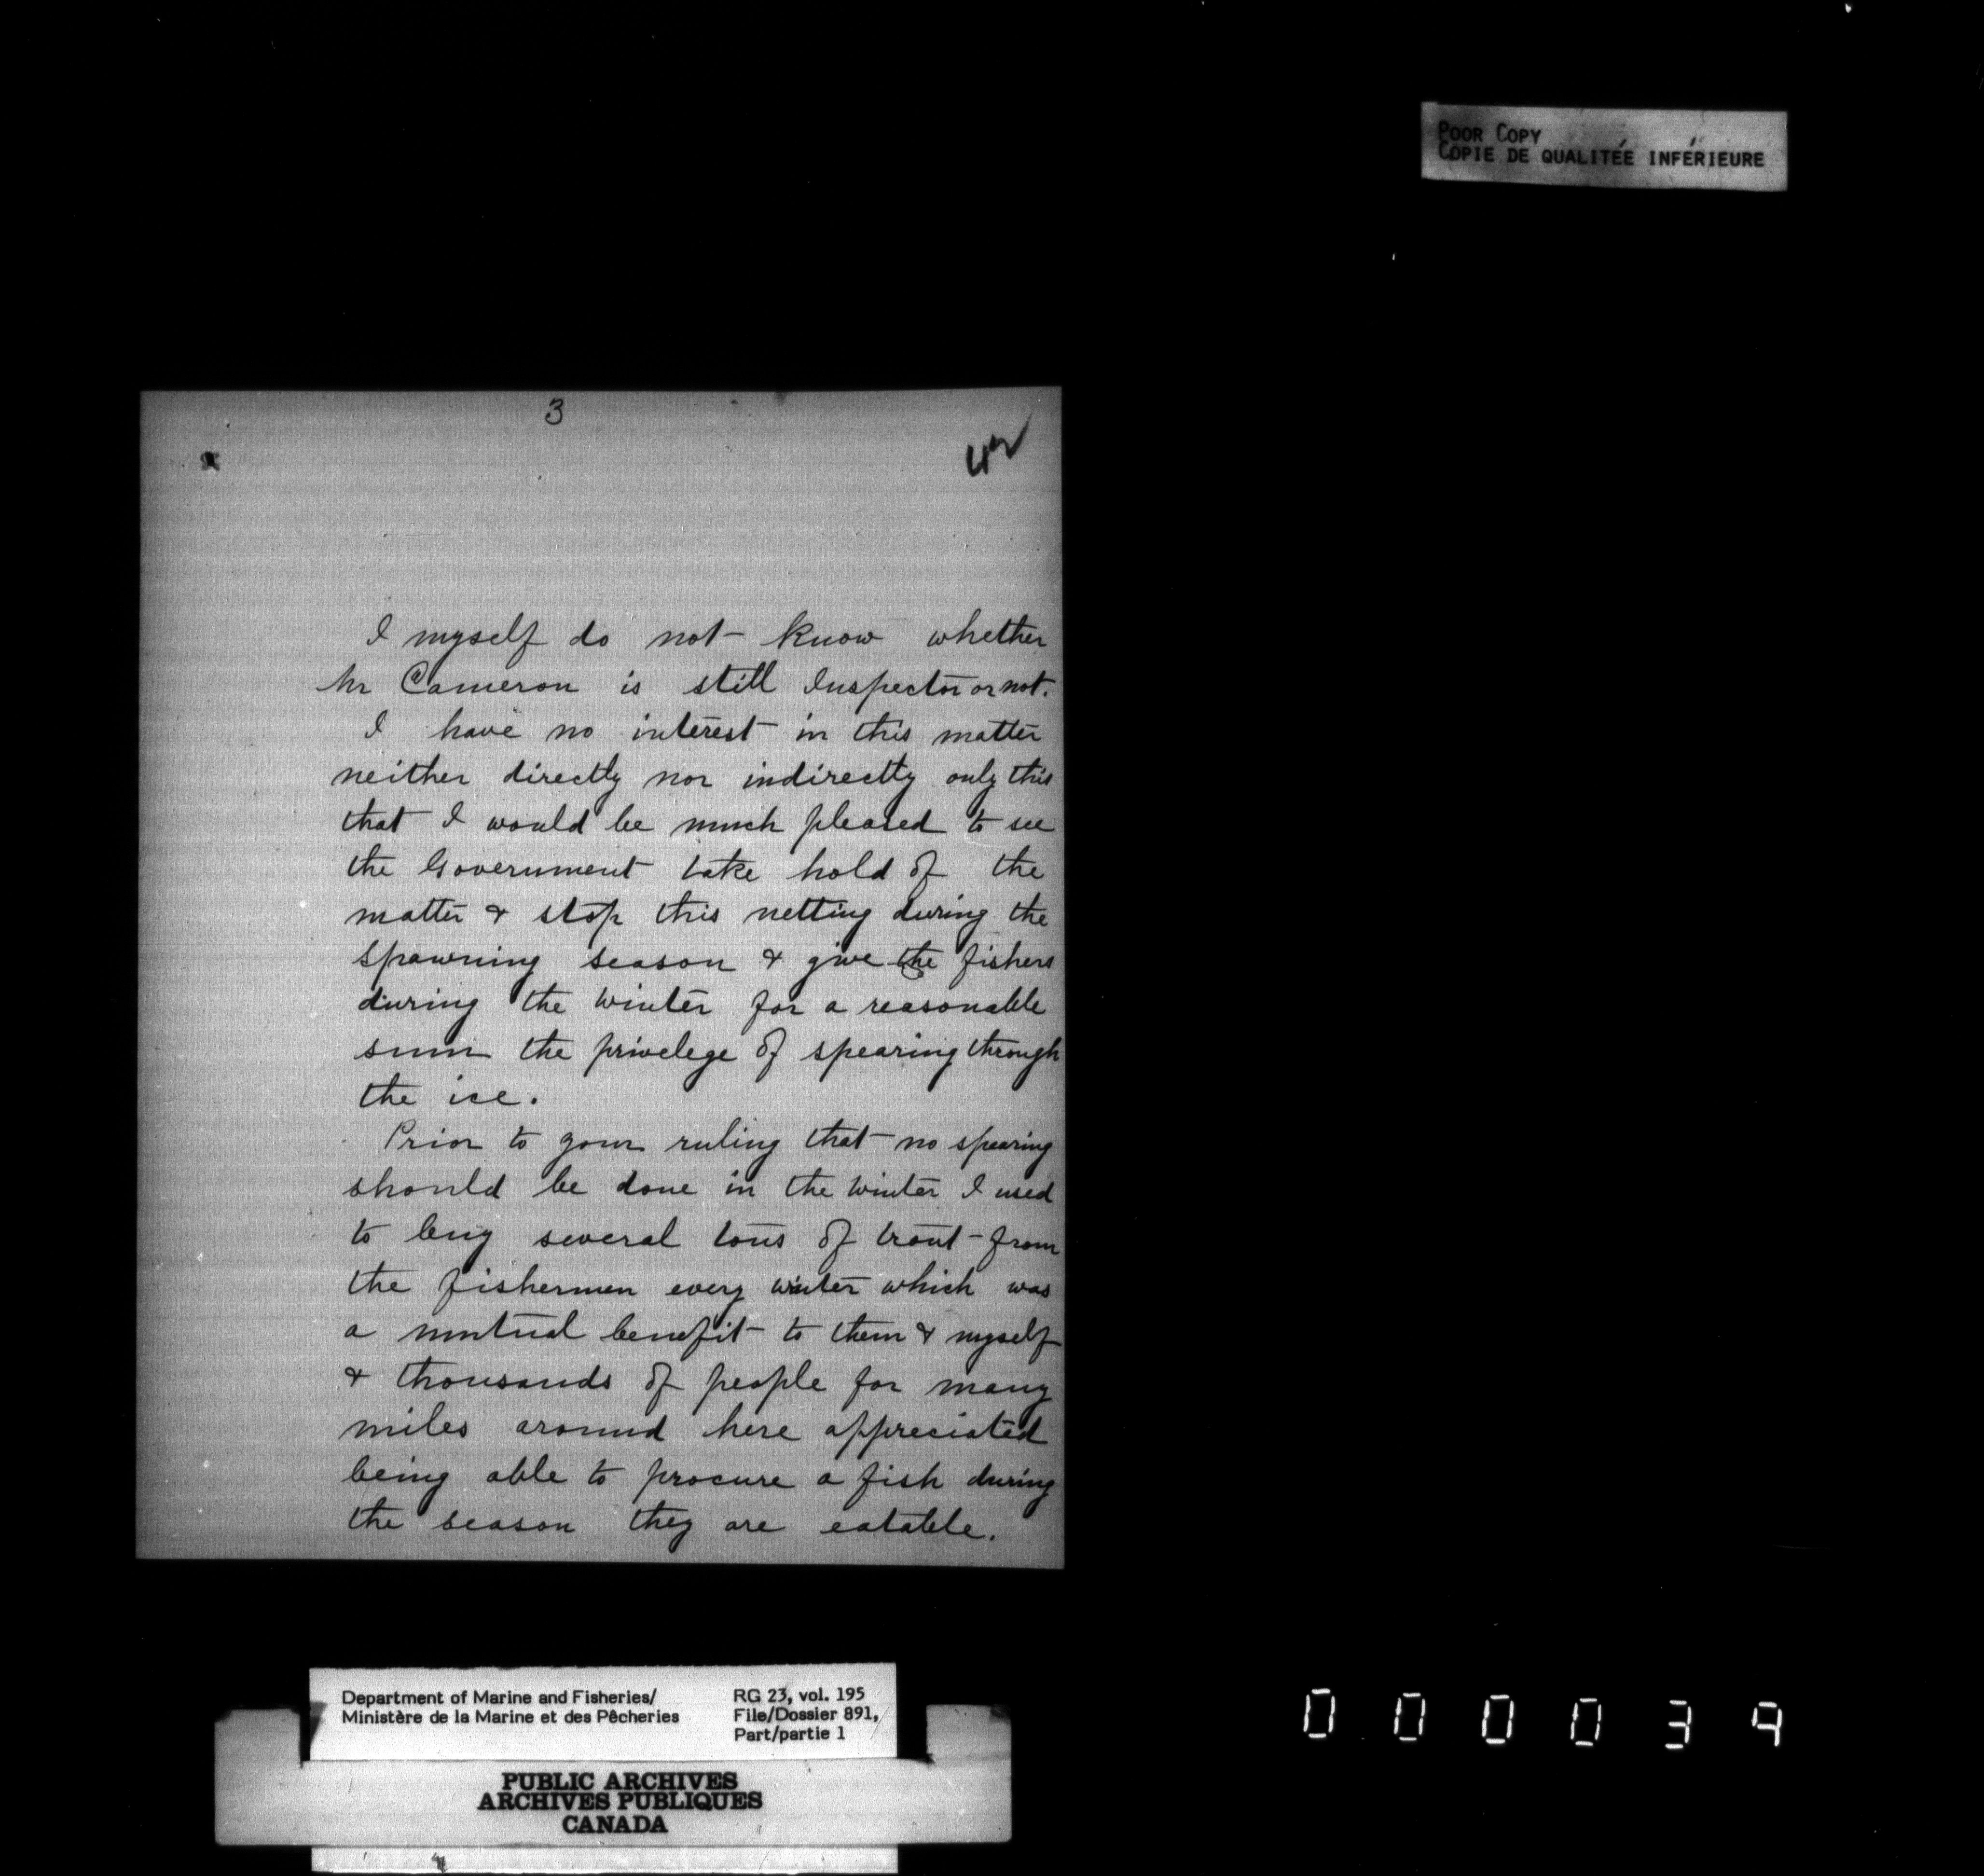 POOR COPY
COPIE DE QUALITÉE INFÉRIEURE
3
I myself do not know whether
Mr Cameron is still Inspector or not.
I have no interest in this matter
neither directly nor indirectly only this
that I would be much pleased to see
the Government take hold of the
matter & stop this netting during the
spawning season & give the fishers
during the winter for a reasonable
sum the privelege of spearing through
the ice.
Prior to your ruling that no spearing
should be done in the winter I used
to buy several tons of trout from
the fishermen every winter which was
a mutual benefit to them & myself
& thousands of people for many
miles around here appreciated
being able to procure a fish during
the season they are eatable.
Department of Marine and Fisheries/
Ministère de la Marine et des Pêcheries
RG 23, vol. 195
File/Dossier 891,
Part/partie 1
PUBLIC ARCHIVES
ARCHIVES PUBLIQUES
CANADA
000039